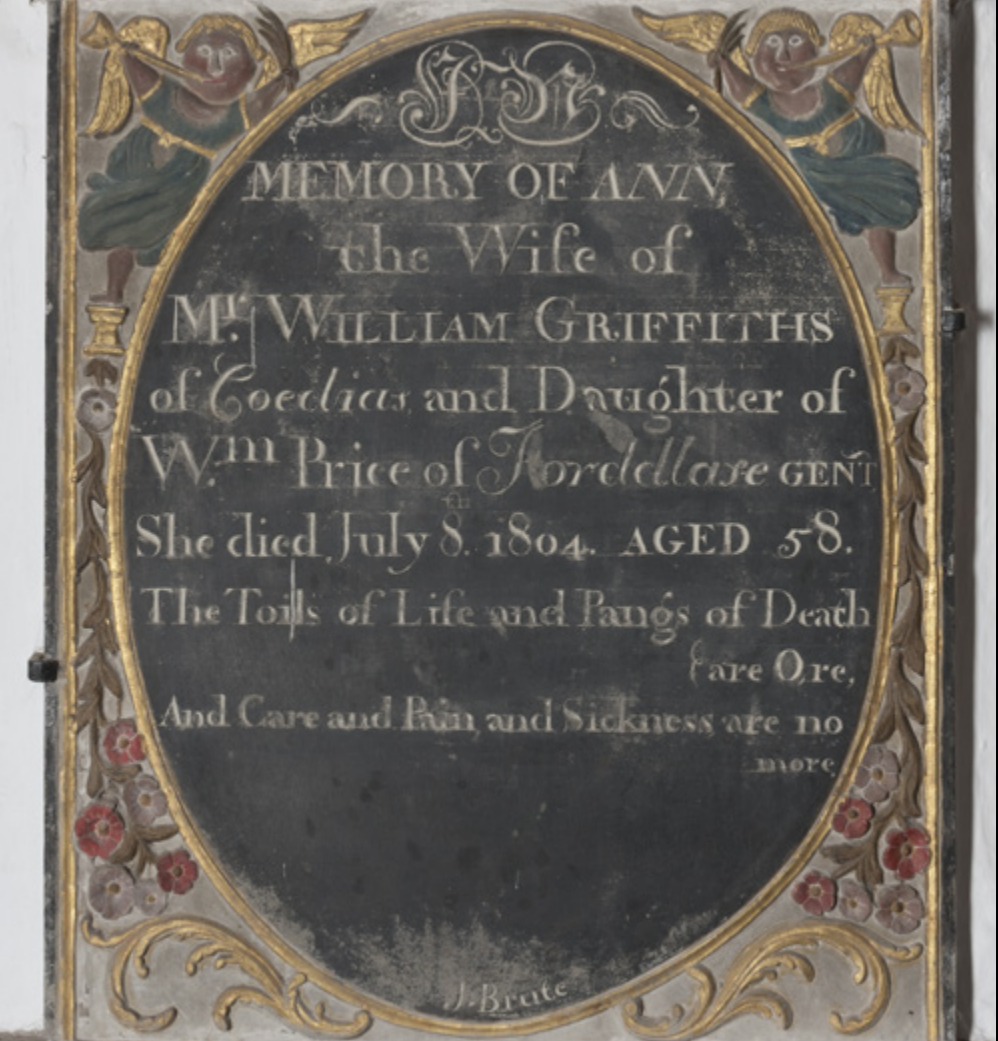 IN
MEMORY OF ANN,
the Wife of
Mr. WILLIAM GRIFFITHS
of Coedias and Daughter of
Wm. Price of Forddlase GENT
She died July 8th. 1804. AGED 58.
The Toils of Life and Pangs of Death
are O,re,
And Care and Pain, and Sickness are no
more
J. Brute